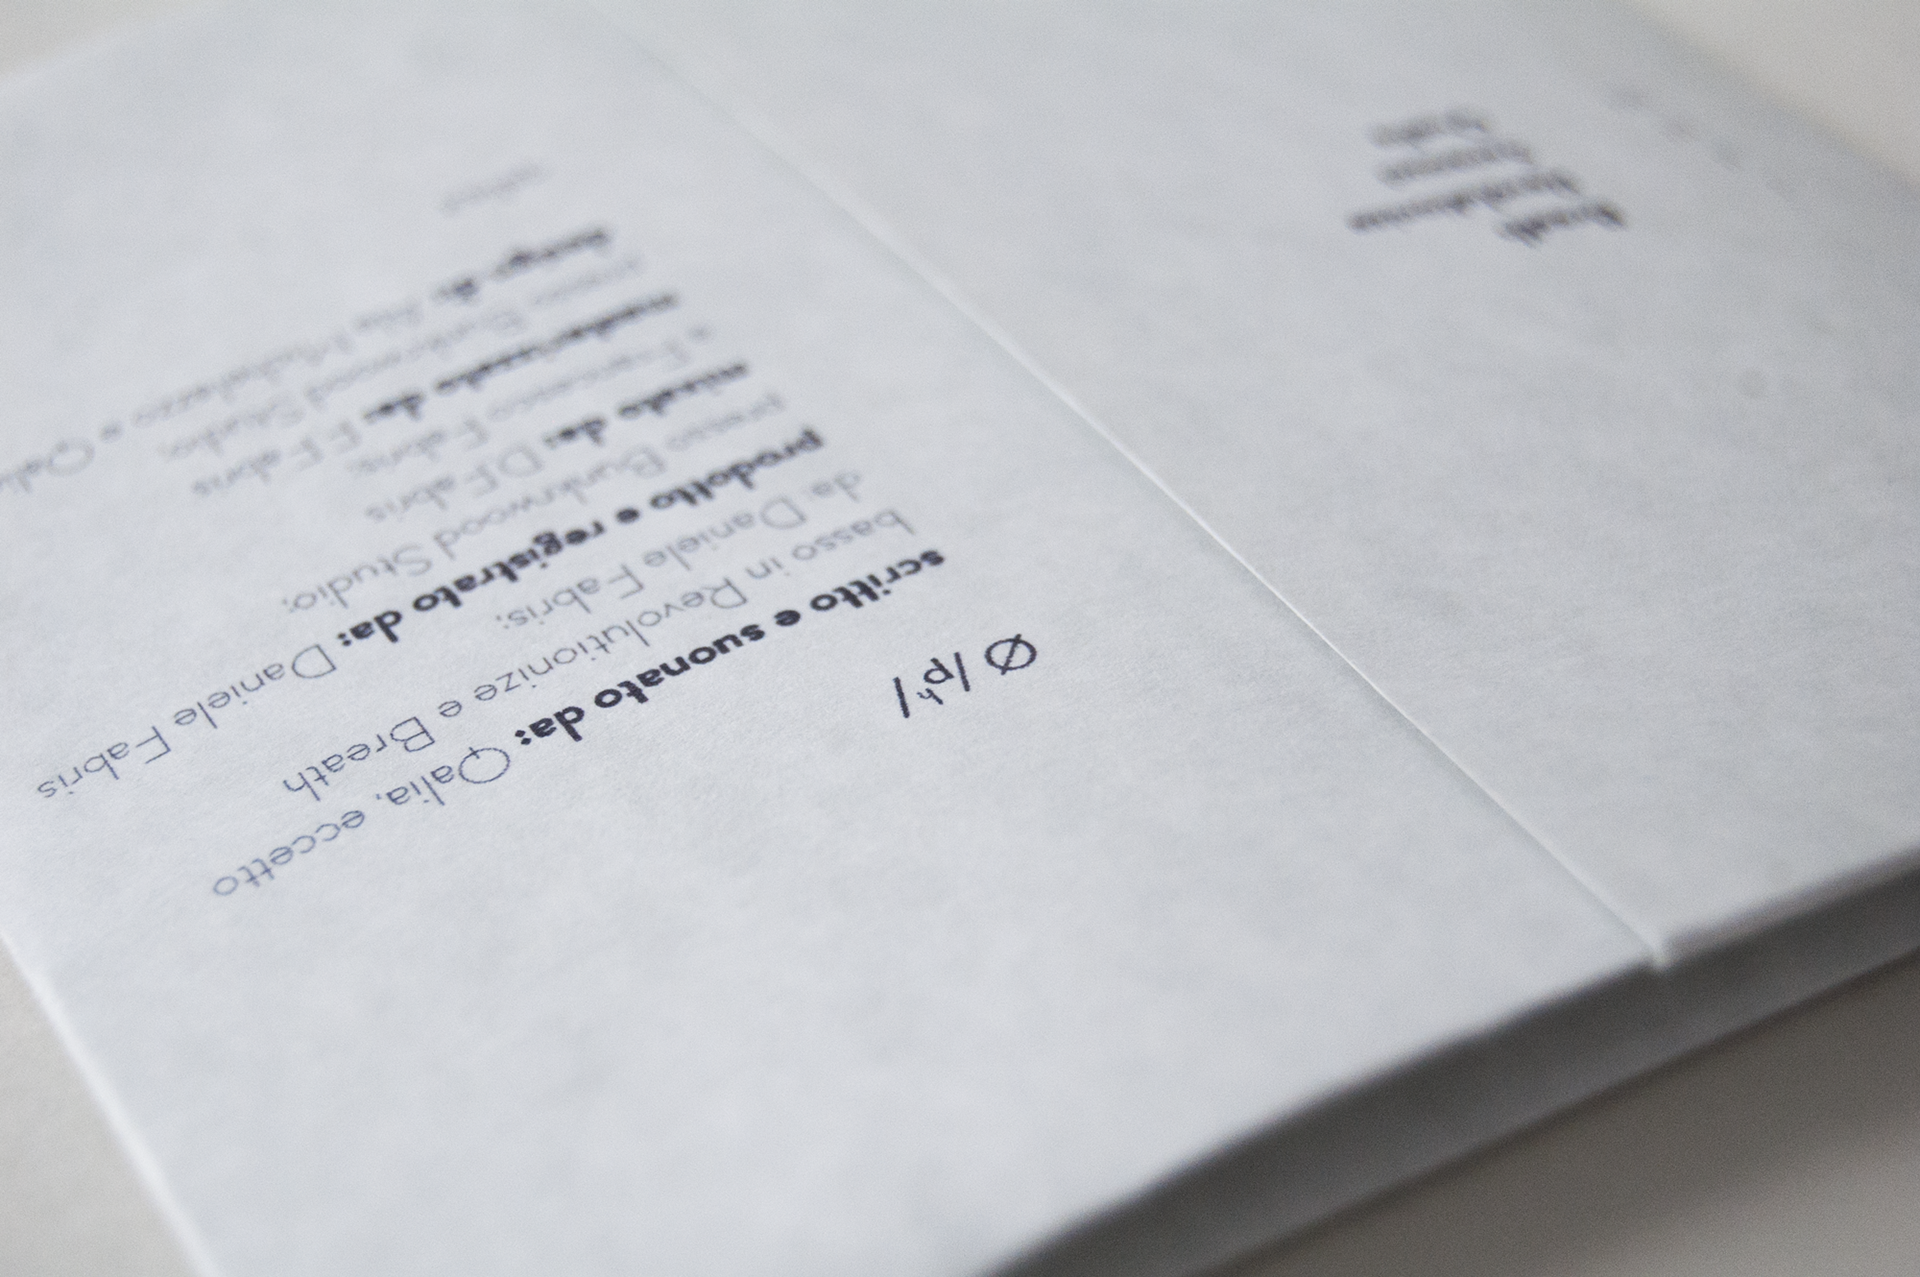 Ø /pʰ/
scritto e suonato da: Qalia, eccetto
basso in Revolutionize e Breath
da Daniele Fabris;
prodotto e registrato da: Daniele Fabris
presso Bunkrwood Studio;
mixato da: D Fabris
e Francesco Fabris;
masterizzato da: F Fabris
presso Bunkrwood Studio;
design di: Aly e Qalia